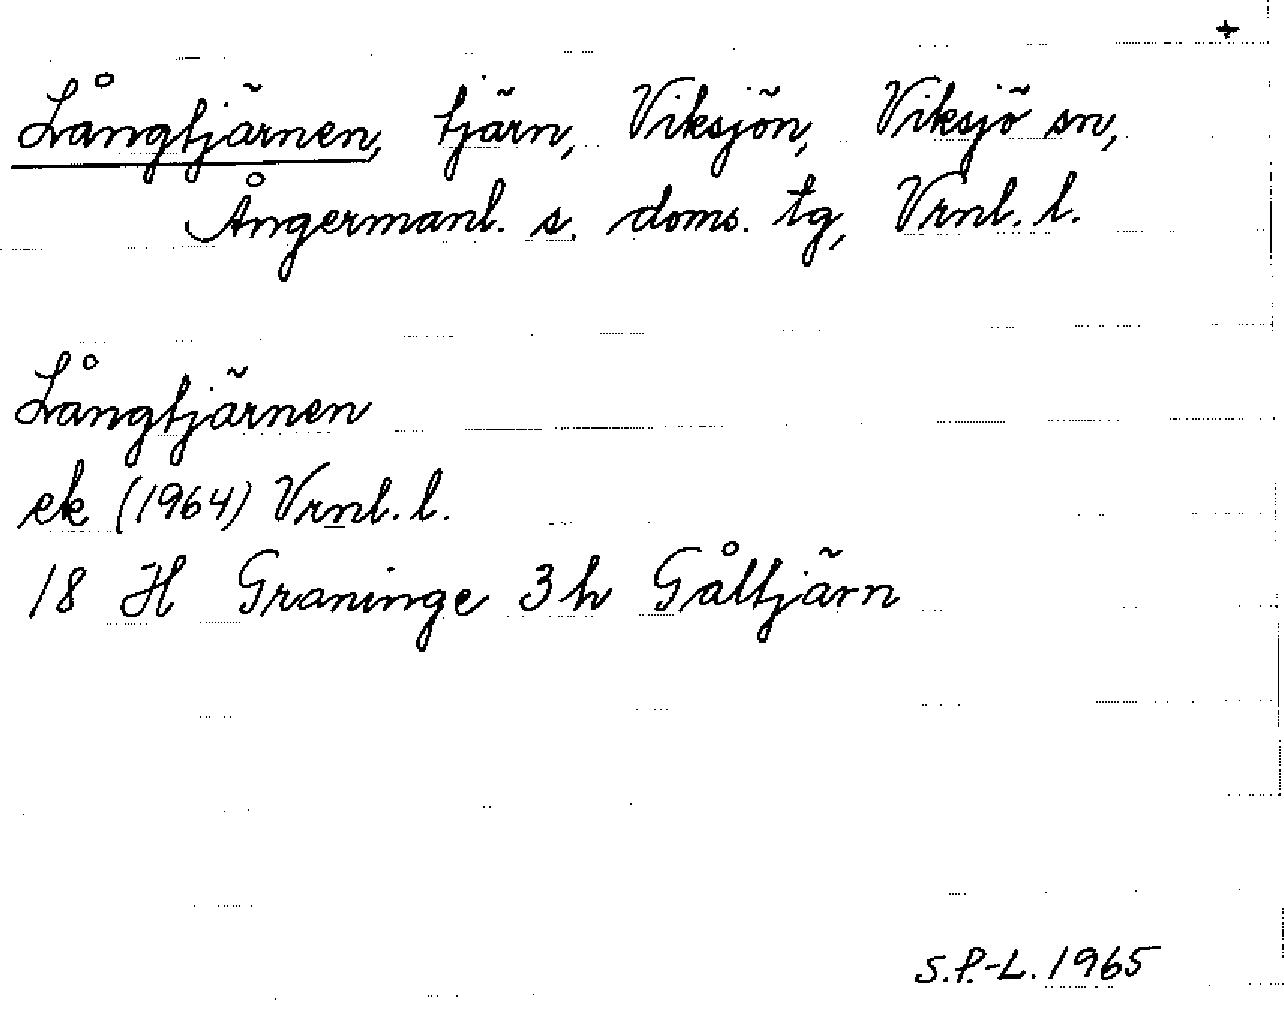 +
Långtjärnen, tjärn, Viksjön, Viksjö sn,
Ångermanl. s. doms. tg, Vrnl. l.
Långtjärnen
ek (1964) Vrnl. l.
18 H Graninge 3h Gåltjärn
S.P.-L. 1965